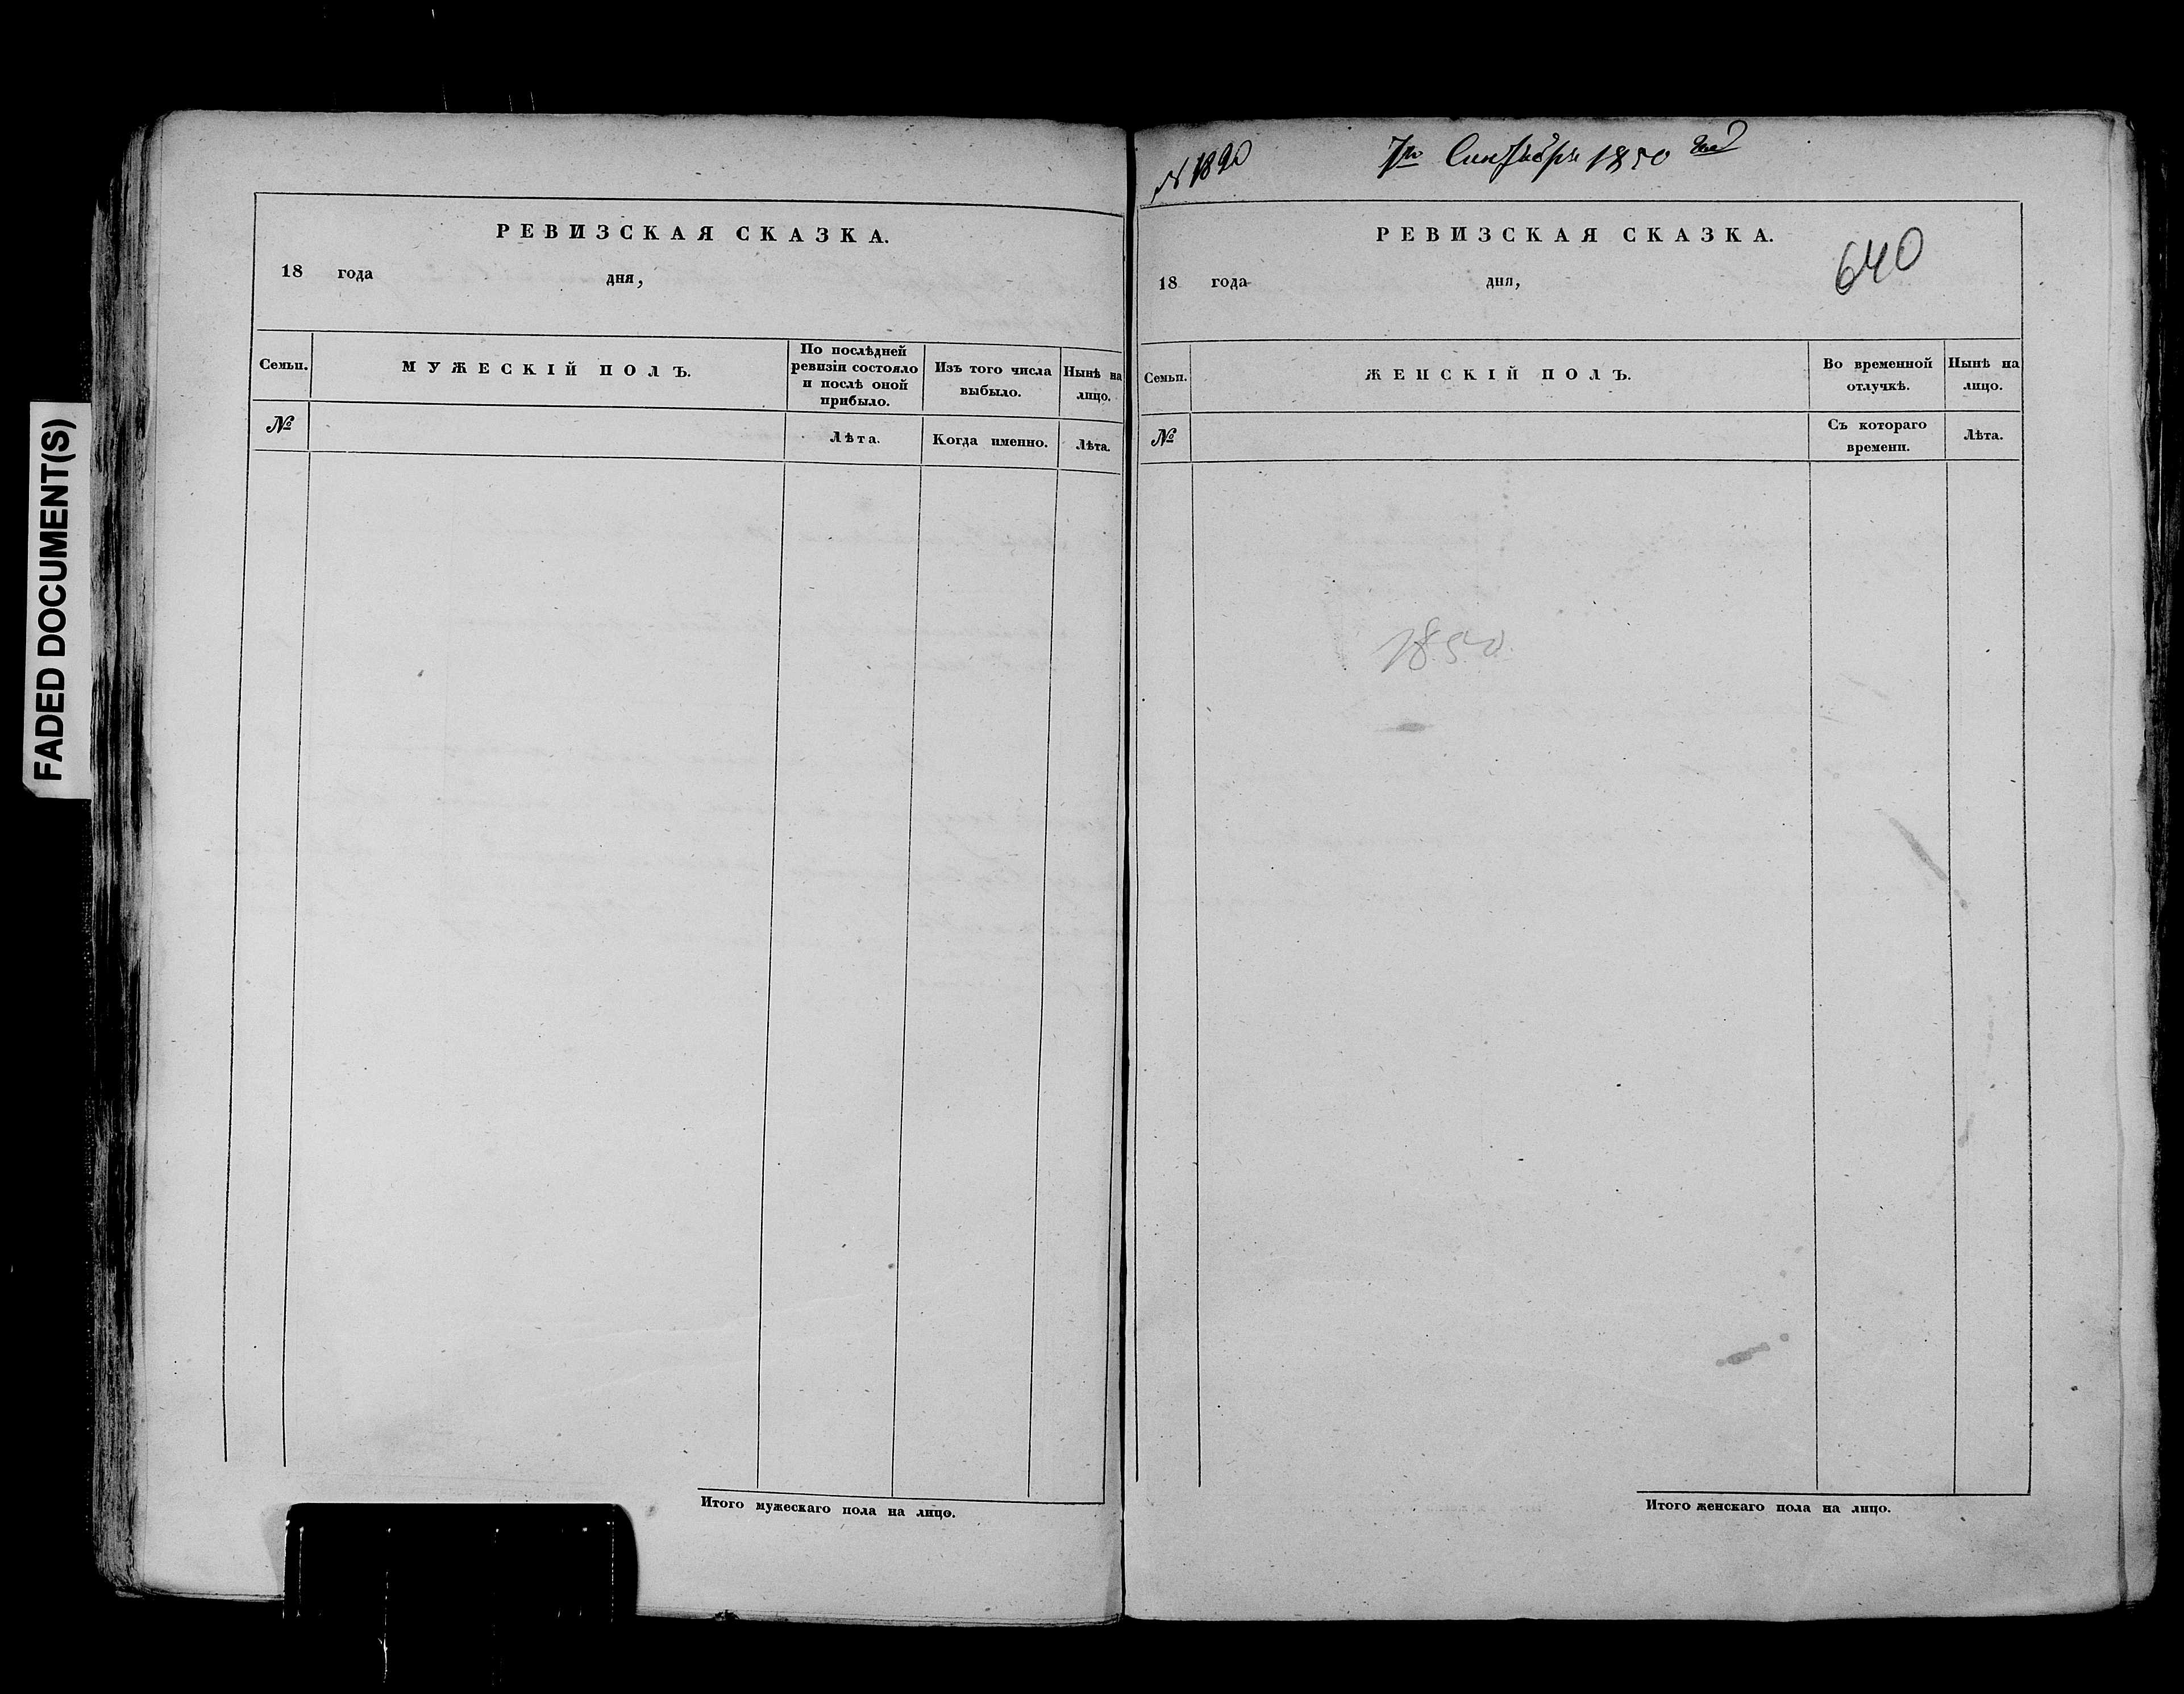 FADED DOCUMENT(S)
РЕВИЗСКАЯ СКАЗКА.
18 года дня,
Семьи.
МУЖЕСКІЙ ПОЛЪ.
По послѣдней
ревизіи состояло
и послѣ оной
прибыло.
Изъ того числа
выбыло.
Нынѣ на
лицо.
№
Лѣта.
Когда именно.
Лѣта.
Итого мужескаго пола на лицо.
№ 1890
7го Сентября 1850 года
РЕВИЗСКАЯ СКАЗКА.
640
18 года дня,
Семьи.
ЖЕНСКІЙ ПОЛЪ.
Во временной
отлучкѣ.
Нынѣ на
лицо.
№
Съ котораго
времени.
Лѣта.
1850.
Итого женскаго пола на лицо.